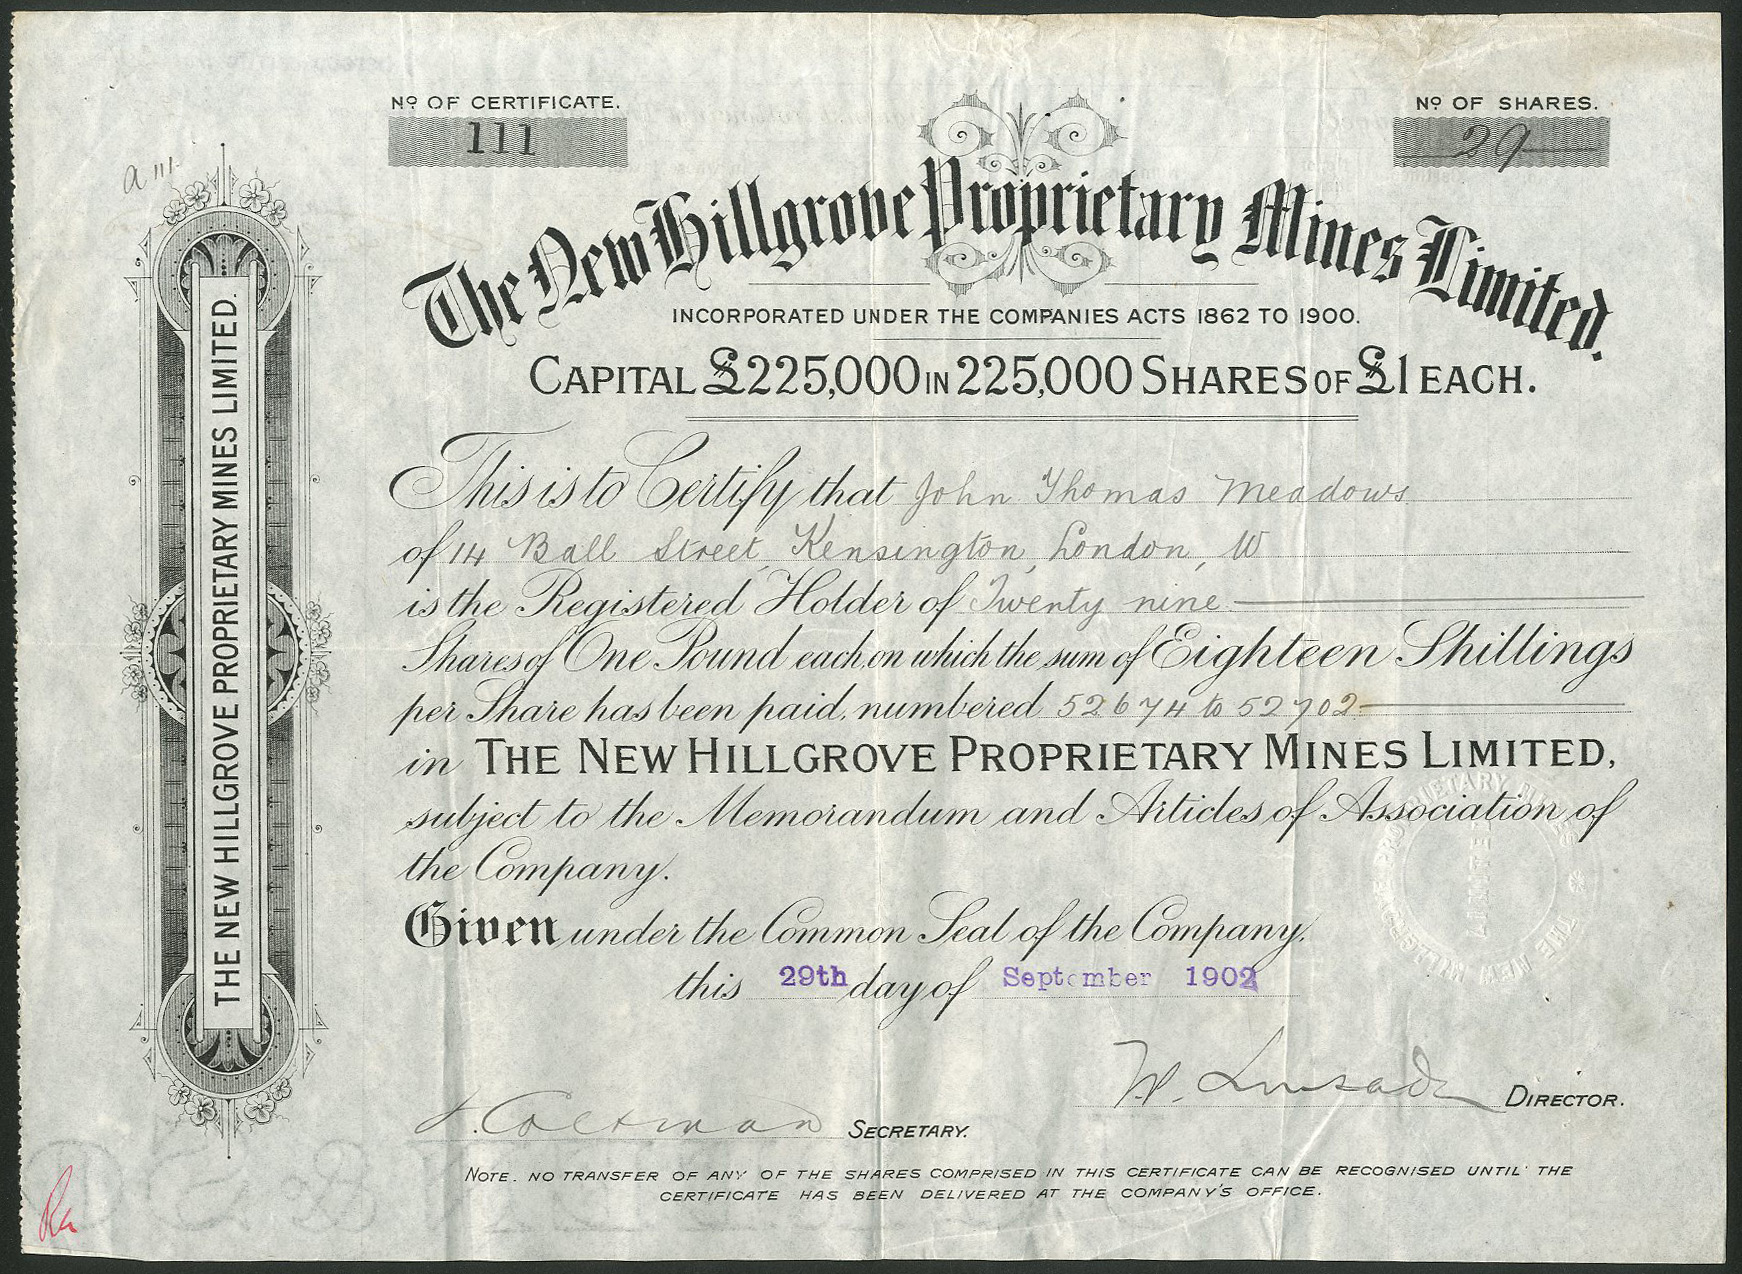 Nº OF CERTIFICATE.
111
Nº OF SHARES.
29
a 111.
The New Hillgrove Proprietary Mines Limited.
INCORPORATED UNDER THE COMPANIES ACTS 1862 TO 1900.
CAPITAL £225,000 IN 225,000 SHARES OF £1 EACH.
This is to Certify that John Thomas Meadows
of 14 Ball Street, Kensington, London, W
is the Registered Holder of Twenty nine
Shares of One Pound each, on which the sum of Eighteen Shillings
per Share has been paid, numbered 52674 to 52702
in THE NEW HILLGROVE PROPRIETARY MINES LIMITED,
subject to the Memorandum and Articles of Association of
the Company.
Given under the Common Seal of the Company,
this 29th day of September 1902
DIRECTOR.
Coltman SECRETARY.
NOTE. NO TRANSFER OF ANY OF THE SHARES COMPRISED IN THIS CERTIFICATE CAN BE RECOGNISED UNTIL THE
CERTIFICATE HAS BEEN DELIVERED AT THE COMPANY'S OFFICE.
THE NEW HILLGROVE PROPRIETARY MINES LIMITED.
THE NEW HILLGROVE PROPRIETARY MINES
LIMITED